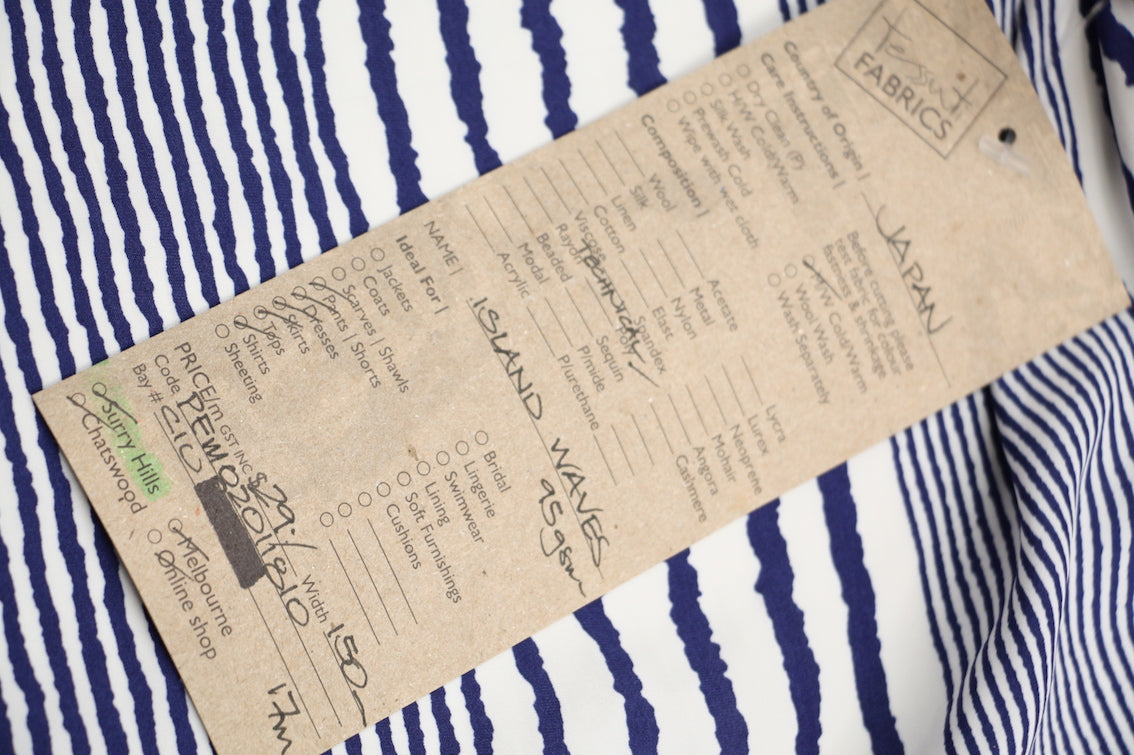 Tessuti
FABRICS
Country of Origin | JAPAN
Care Instructions |
Before cutting please
test fabric for colour
fastness & shrinkage
Dry Clean (P)
H/W Cold/Warm
Silk Wash
Prewash Cold
Wipe with wet cloth
H/W Cold/Warm
Wool Wash
Wash Separately
Composition |
Wool
Silk
Linen
Cotton
Viscose
Rayon
Beaded
Modal
Acrylic
TECHNICAL
Acetate
Metal
Nylon
Elast
Spandex
Poly
Sequin
P/mide
P/urethane
Lycra
Lurex
Neoprene
Mohair
Angora
Cashmere
NAME | ISLAND WAVES
95gsm
Ideal For |
Jackets
Coats
Scarves | Shawls
Pants | Shorts
Dresses
Skirts
Tops
Shirts
Sheeting
Bridal
Lingerie
Swimwear
Lining
Soft Furnishings
Cushions
PRICE/m GST INC $29./ Width 150
Code PEW0201810
Bay # C10
17m
Surry Hills
Chatswood
Melbourne
Online shop